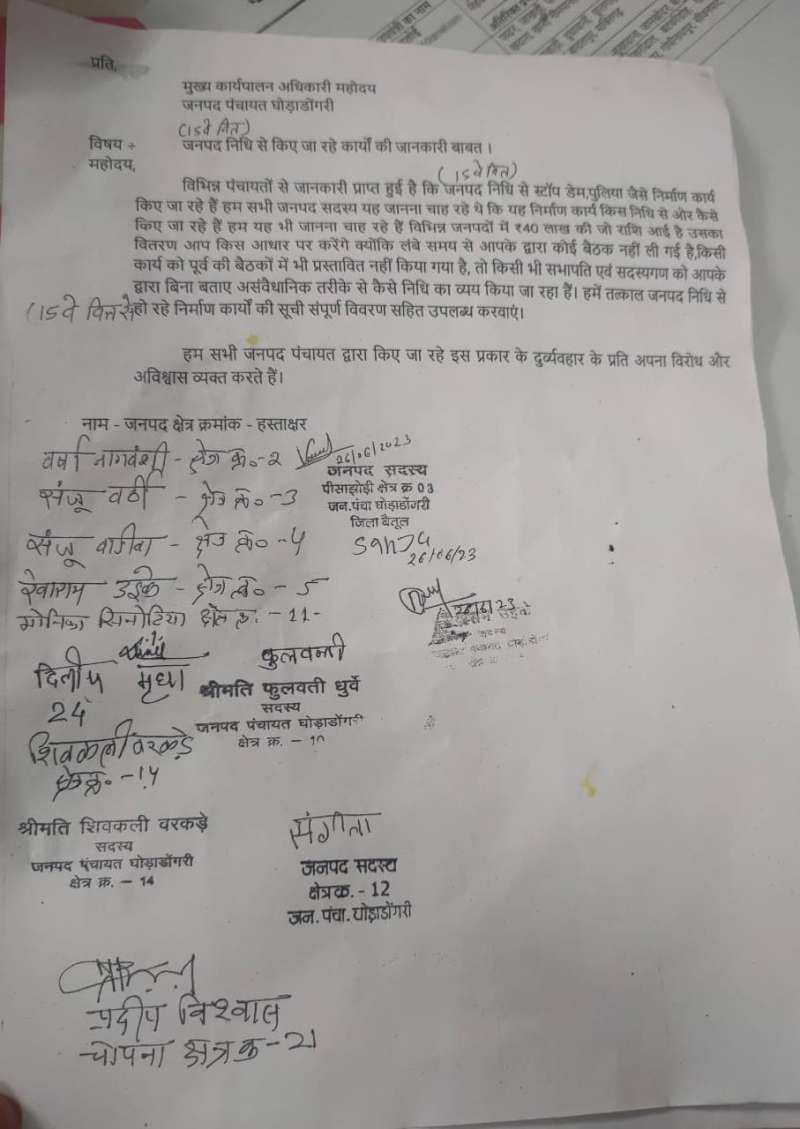 प्रति,
मुख्य कार्यपालन अधिकारी महोदय
जनपद पंचायत घोड़ाडोंगरी
(15 वे वित्त)
विषय ÷ जनपद निधि से किए जा रहे कार्यों की जानकारी बाबत ।
महोदय,
(15 वे वित्त)
विभिन्न पंचायतों से जानकारी प्राप्त हुई है कि जनपद निधि से स्टॉप डेम,पुलिया जैसे निर्माण कार्य
किए जा रहे हैं हम सभी जनपद सदस्य यह जानना चाह रहे थे कि यह निर्माण कार्य किस निधि से और कैसे
किए जा रहे हैं हम यह भी जानना चाह रहे हैं विभिन्न जनपदों में ₹40 लाख की जो राशि आई है उसका
वितरण आप किस आधार पर करेंगे क्योंकि लंबे समय से आपके द्वारा कोई बैठक नहीं ली गई है,किसी
कार्य को पूर्व की बैठकों में भी प्रस्तावित नहीं किया गया है, तो किसी भी सभापति एवं सदस्यगण को आपके
द्वारा बिना बताए असंवैधानिक तरीके से कैसे निधि का व्यय किया जा रहा हैं। हमें तत्काल जनपद निधि से
(15 वे वित्त से) हो रहे निर्माण कार्यों की सूची संपूर्ण विवरण सहित उपलब्ध करवाएं।
हम सभी जनपद पंचायत द्वारा किए जा रहे इस प्रकार के दुर्व्यवहार के प्रति अपना विरोध और
अविश्वास व्यक्त करते हैं।
नाम - जनपद क्षेत्र क्रमांक - हस्ताक्षर
वर्षा नागवंशी - क्षेत्र क्र॰-2 26/06/2023
जनपद सदस्य
संजू वर्ठी - क्षेत्र क्र॰ -3 पीसाझोड़ी क्षेत्र क्र 03
जन.पंचा घोड़ाडोंगरी
जिला बैतूल
संजू - क्षेत्र क्र॰ -4 Sanju
26/06/23
रेवाराम उइके - क्षेत्र क्र॰ - 5
मोनिका सिनोटिया क्षेत्र क्र. - 11-
सदस्य
दिलीप मृधा फुलवन्ती
24 श्रीमति फुलवती धुर्वे
सदस्य
जनपद पंचायत घोड़ाडोंगरी
क्षेत्र क्र. - 10
शिवकली वरकड़े
क्षेत्र क्र॰ -14
श्रीमति शिवकली वरकड़े
सदस्य
जनपद पंचायत घोड़ाडोंगरी
क्षेत्र क्र. - 14
संगीता
जनपद सदस्य
क्षेत्रक्र. - 12
जन.पंचा.घोड़ाडोंगरी
प्रदीप विश्वास
चोपना क्षेत्र क्र - 21